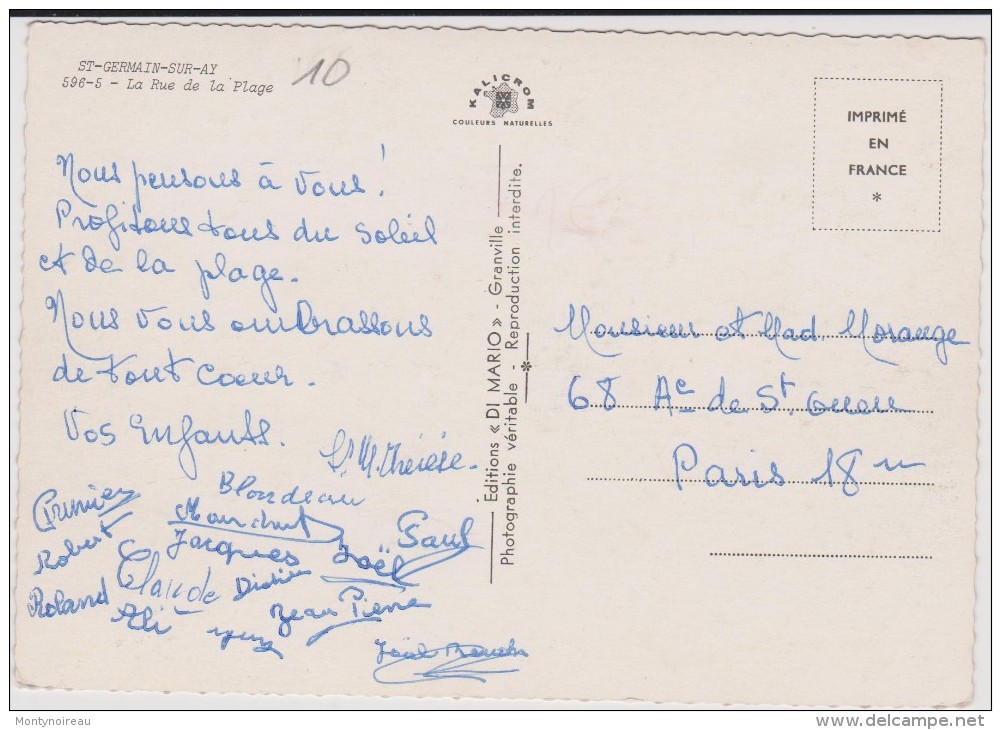 ST-GERMAIN-SUR-AY
596-5 - La Rue de la Plage
10
KALICROM
COULEURS NATURELLES
IMPRIMÉ
EN
FRANCE
*
Nous pensons à vous!
Profitons tous du soleil
et de la plage.
Nous vous embrassons
de tout coeur.
Vos Enfants.
Sr M. Thérèse.
Blondeau
Robert
Jacques
Joël
Paul
Roland
Claude
Didier
Ali
Jean Pierre
Joël
Editions « DI MARIO » - Granville
Photographie véritable - Reproduction interdite.
*
Monsieur et Mad. Morange
68 Ac de St. Ouen
Paris 18
Montynoireau
delcampe.net